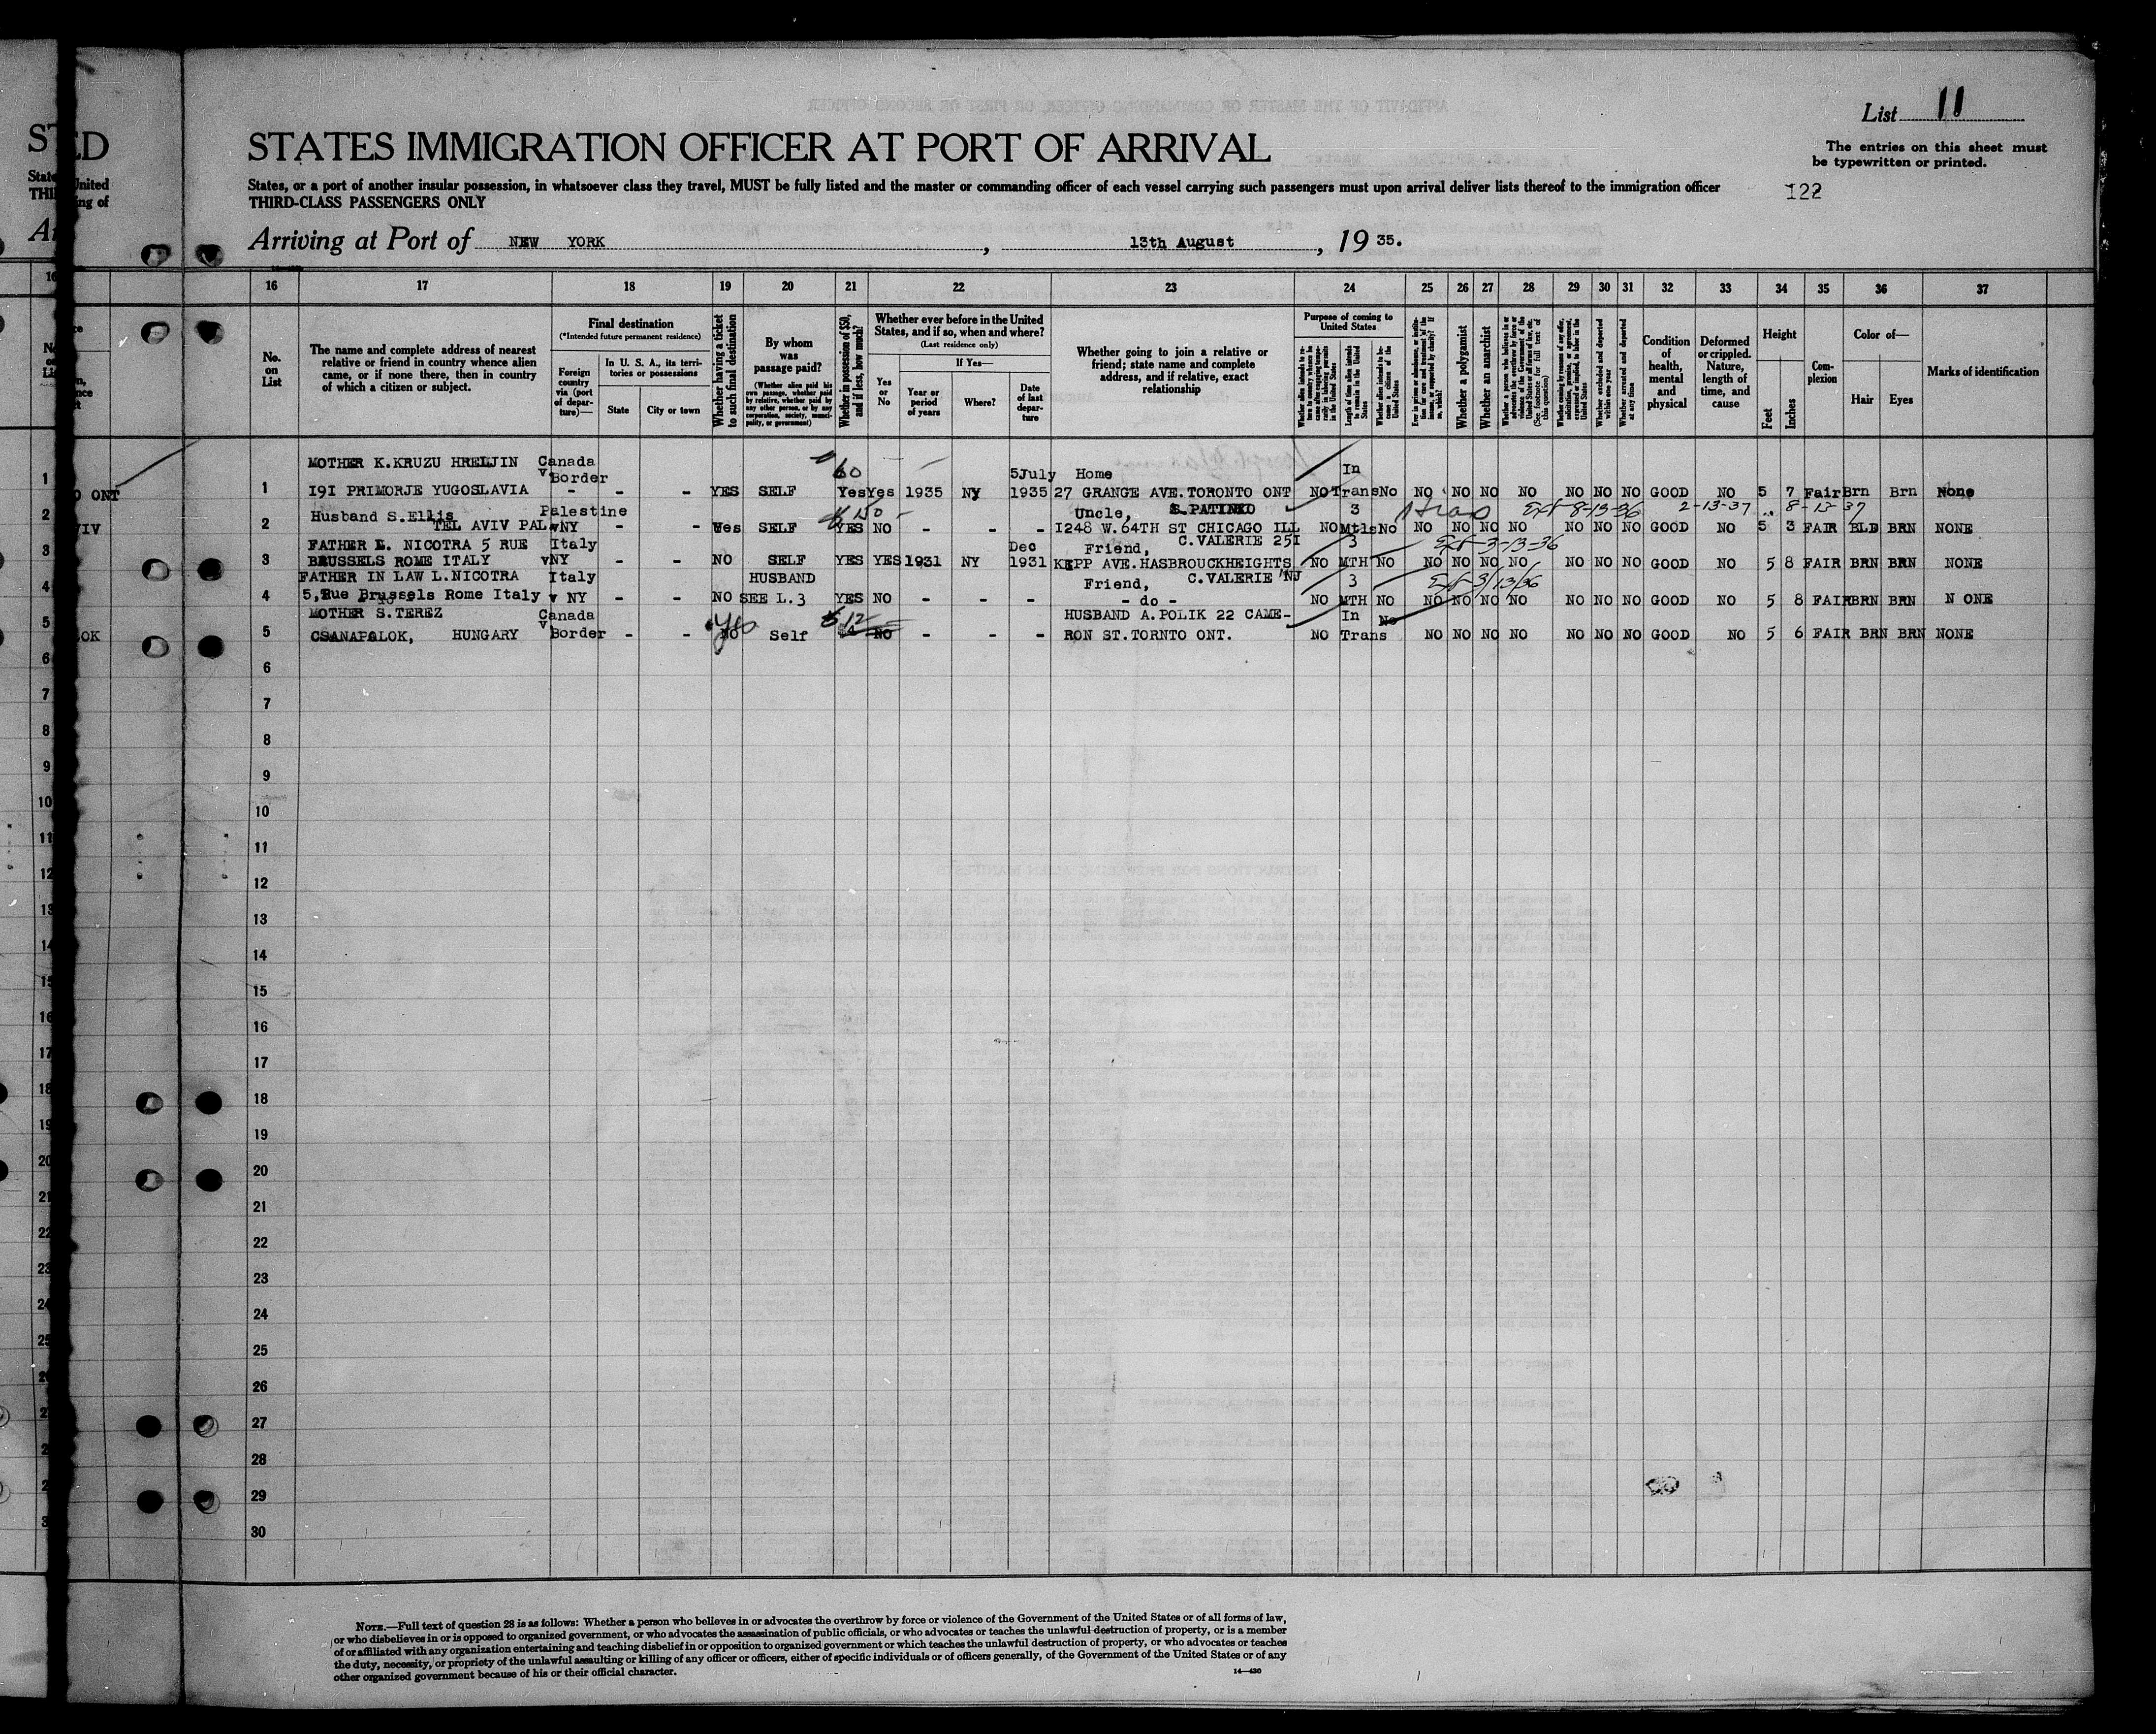 List 11
STATES IMMIGRATION OFFICER AT PORT OF ARRIVAL
The entries on this sheet must
be typewritten or printed.
States, or a port of another insular possession, in whatsoever class they travel, MUST be fully listed and the master or commanding officer of each vessel carrying such passengers must upon arrival deliver lists thereof to the immigration officer
THIRD-CLASS PASSENGERS ONLY
122
Arriving at Port of NEW YORK, 13th August, 19 35.
16 17 18 19 20 21 22 23 24 25 26 27 28 29 30 31 32 33 34 35 36 37
No. on List
The name and complete address of nearest
relative or friend in country whence alien
came, or if none there, then in country
of which a citizen or subject.
Final destination
(*Intended future permanent residence)
Foreign country via (port of departure)—
In U. S. A., its territories or possessions
State
City or town
Whether having a ticket to such final destination
By whom was passage paid?
(Whether alien paid his own passage, whether paid by relative, whether paid by any other person, or by any corporation, society, municipality, or government)
Whether in possession of $50, and if less, how much?
Whether ever before in the United States, and if so, when and where?
(Last residence only)
Yes or No
If Yes—
Year or period of years
Where?
Date of last departure
Whether going to join a relative or
friend; state name and complete
address, and if relative, exact
relationship
Purpose of coming to United States
Length of time alien intends to remain in the United States
Whether alien intends to become a citizen of the United States
Whether a polygamist
Whether an anarchist
Whether arrested and deported at any time
Condition of health, mental and physical
Deformed or crippled. Nature, length of time, and cause
Height
Feet
Inches
Complexion
Color of—
Hair
Eyes
Marks of identification
MOTHER K.KRUZU HRELJIN Canada 60 5July Home In
1 191 PRIMORJE YUGOSLAVIA v Border - - YES SELF Yes Yes 1935 NY 1935 27 GRANGE AVE.TORONTO ONT NO Trans No NO NO NO NO NO NO NO GOOD NO 5 7 Fair Brn Brn None
Husband S.Ellis Palestine 150 Uncle, S.PATINKO 3 Ext 8-13-36 2-13-37 8-13-37
2 TEL AVIV PAL vNY - - Yes SELF YES NO - - - 1248 W.64TH ST CHICAGO ILL NO Mtls No NO NO NO NO NO NO NO GOOD NO 5 3 FAIR BLD BRN NONE
FATHER L. NICOTRA 5 RUE Italy Dec Friend, C.VALERIE 251 3 Ext 3-13-36
3 BRUSSELS ROME ITALY vNY - - NO SELF YES YES 1931 NY 1931 KEPP AVE.HASBROUCKHEIGHTS NO MTH NO NO NO NO NO NO NO NO GOOD NO 5 8 FAIR BRN BRN NONE
FATHER IN LAW L.NICOTRA Italy HUSBAND Friend, C.VALERIE NJ 3 Ext 3/13/36
4 5,Rue Brussels Rome Italy v NY - - NO SEE L.3 YES NO - - - - do - NO MTH NO NO NO NO NO NO NO NO GOOD NO 5 8 FAIR BRN BRN NONE
MOTHER S.TEREZ Canada yes $12 HUSBAND A.POLIK 22 CAME- In No
5 CSANAPALOK, HUNGARY v Border - - NO Self NO - - - RON ST.TORNTO ONT. NO Trans NO NO NO NO NO NO NO GOOD NO 5 6 FAIR BRN BRN NONE
6
7
8
9
10
11
12
13
14
15
16
17
18
19
20
21
22
23
24
25
26
27
28
29
30
NOTE.—Full text of question 28 is as follows: Whether a person who believes in or advocates the overthrow by force or violence of the Government of the United States or of all forms of law,
or who disbelieves in or is opposed to organized government, or who advocates the assassination of public officials, or who advocates or teaches the unlawful destruction of property, or is a member
of or affiliated with any organization entertaining and teaching disbelief in or opposition to organized government or which teaches the unlawful destruction of property, or who advocates or teaches
the duty, necessity, or propriety of the unlawful assaulting or killing of any officer or officers, either of specific individuals or of officers generally, of the Government of the United States or of any
other organized government because of his or their official character.
14—430